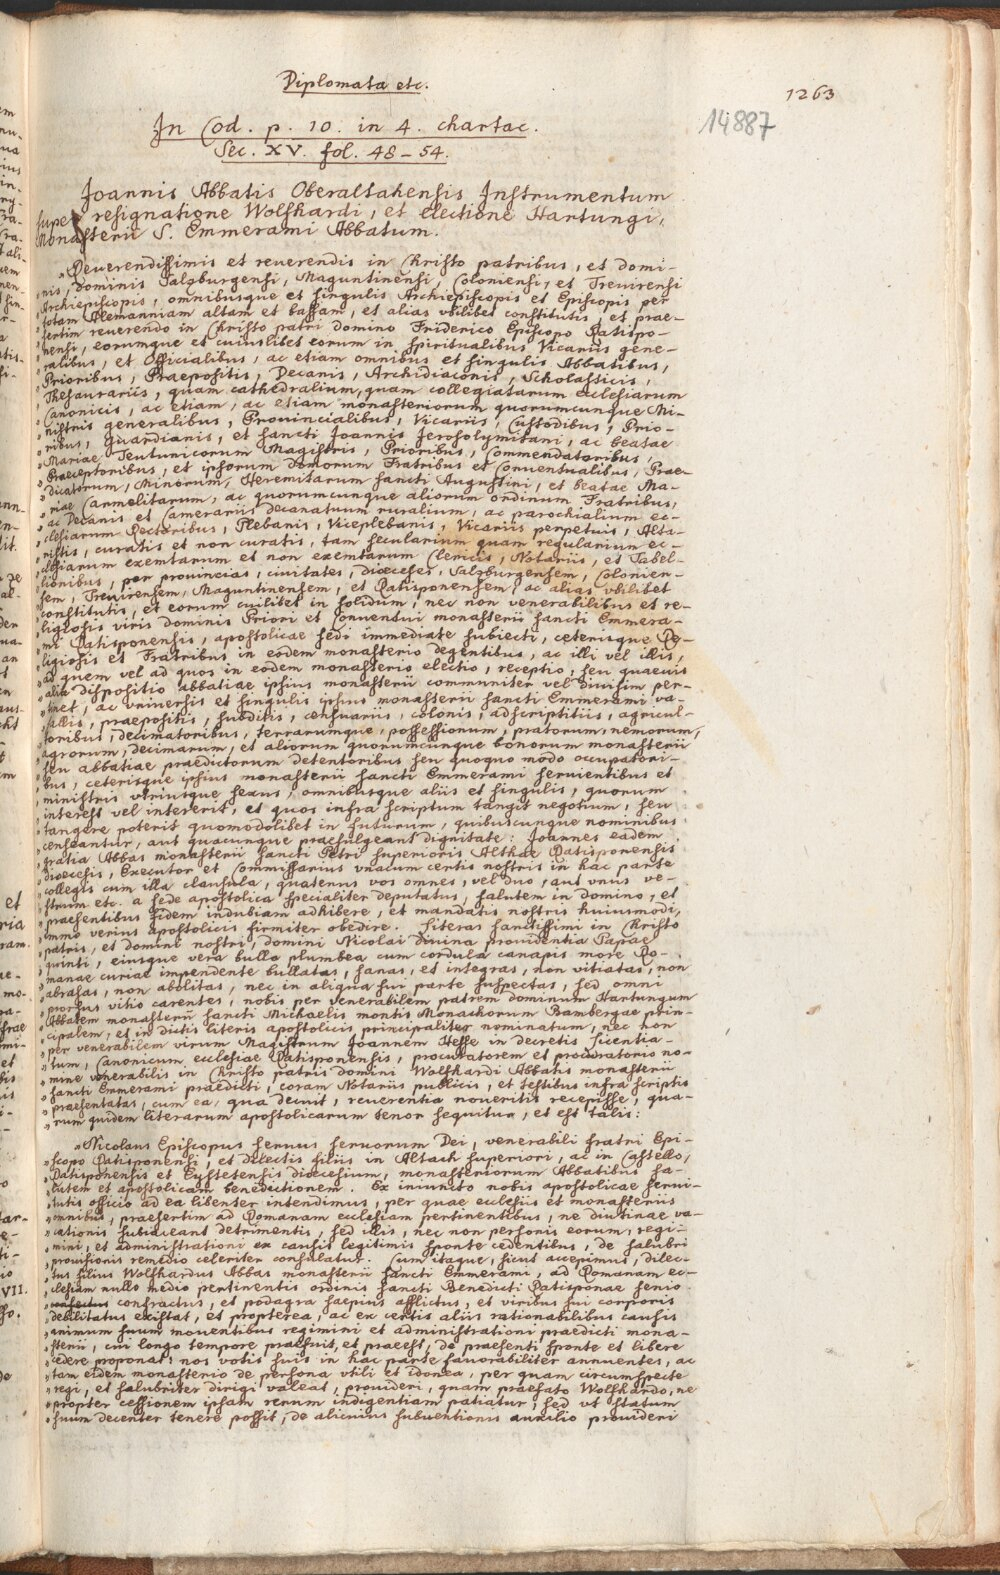 Diplomata etc.
1263
14887
In Cod. p. 10. in 4. chartac.
Sec. XV. fol. 48-54.
Joannis Abbatis Oberaltahensis Instrumentum
super resignatione Wolfhardi, et electione Hartungi,
Monasterii S. Emmerami Abbatum.
„Reuerendissimis et reuerendis in Christo patribus, et domi-
„nis, dominis Salzburgensi, Maguntinensi, Coloniensi, et Treuirensi
„Archiepiscopis, omnibusque et singulis Archiepiscopis et Episcopis per
„totam Alemanniam altam et bassam, et alias vbilibet constitutis, et prae-
„sertim reuerendo in Christo patri domino Friderico Episcopo Ratispo-
„nensi, eorumque et cuiuslibet eorum in spiritualibus Vicariis gene-
„ralibus, et Officialibus, ac etiam omnibus et singulis Abbatibus,
„Prioribus, Praepositis, Decanis, Archidiaconis, Scholasticis,
„Thesaurariis, quam cathedralium, quam collegiatarum ecclesiarum
„Canonicis, ac etiam, ac etiam monasteriorum quorumcunque Mi-
„nistris generalibus, Prouincialibus, Vicariis, Custodibus, Prio-
„ribus, Guardianis, et sancti Joannis Jerosolymitani, ac beatae
„Mariae Teutunicorum Magistris, Prioribus, Commendatoribus,
„Praeceptoribus, et ipsorum domorum Fratribus et Conuentualibus, Prae-
„dicatorum, Minorum, Heremitarum sancti Augustini, et beatae Ma-
„riae Carmelitarum, ac quorumcunque aliorum ordinum Fratribus,
„ac Decanis et Camerariis decanatuum ruralium, ac parochialium ec-
„clesiarum Rectoribus, Plebanis, Viceplebanis, Vicariis perpetuis, Alta-
„ristis, curatis et non curatis, tam secularium quam regularium ec-
„clesiarum exemtarum et non exemtarum Clericis, Notariis, et Tabel-
„lionibus, per prouincias, ciuitates, dioeceses, Salzburgensem, Colonien-
„sem, Treuirensem, Maguntinensem, et Ratisponensem, ac alias vbilibet
„constitutis, et eorum cuilibet in solidum, nec non venerabilibus et re-
„ligiosis viris dominis Priori et Conuentui monasterii sancti Emmera-
„mi Ratisponensis, apostolicae sedi immediate subiecti, ceterisque Re-
„ligiosis et Fratribus in eodem monasterio degentibus, ac illi vel illis,
„ad quem vel ad quos in eodem monasterio electio, receptio, seu quaeuis
„alia dispositio abbatiae ipsius monasterii communiter vel diuisim per-
„tinet, ac vniuersis et singulis ipsius monasterii sancti Emmerami va-
„sallis, praepositis, subditis, censuariis, colonis, adscriptitiis, agricul-
„toribus, decimatoribus, terrarumque, possessionum, pratorum, nemorum,
„agrorum, decimarum, et aliorum quorumcunque bonorum monasterii
„seu abbatiae praedictorum detentoribus seu quoquo modo occupatori-
„bus, ceterisque ipsius monasterii sancti Emmerami seruientibus et
„ministris vtriusque sexus, omnibusque aliis et singulis, quorum
„interest vel intererit, et quos infra scriptum tangit negotium, seu
„tangere poterit quomodolibet in futurum, quibuscunque nominibus
„censeantur, aut quacunque praefulgeant dignitate: Joannes eadem
„gratia Abbas monasterii sancti Petri superioris Althae Ratisponensis
„dioecesis, Executor et Commissarius vnacum certis nostris in hac parte
„collegis cum illa clausula, quatenus vos omnes, vel duo, aut vnus ve-
„strum etc. a sede apostolica specialiter deputatus, salutem in domino, et
„praesentibus fidem indubiam adhibere, et mandatis nostris huiusmodi,
„immo verius apostolicis firmiter obedire. Literas sanctissimi in Christo
„patris, et domini nostri, domini Nicolai diuina prouidentia Papae
„quinti, eiusque vera bulla plumbea cum cordula canapis more Ro-
„manae curiae impendente bullatas, sanas, et integras, non vitiatas, non
„abrasas, non abolitas, nec in aliqua sui parte suspectas, sed omni
„prorsus vitio carentes, nobis per venerabilem patrem dominum Hartungum
„Abbatem monasterii sancti Michaelis montis Monachorum Bambergae prin-
„cipalem, et in dictis literis apostolicis principaliter nominatum, nec non
„per venerabilem virum Magistrum Joannem Hesse in decretis Licentia-
„tum, Canonicum ecclesiae Ratisponensis, procuratorem et procuratorio no-
„mine venerabilis in Christo patris domini Wolfhardi Abbatis monasterii
„sancti Emmerami praedicti, coram Notariis publicis, et testibus infra scriptis
„praesentatas, cum ea, qua decuit, reuerentia noueritis recepisse, qua-
„rum quidem literarum apostolicarum tenor sequitur, et est talis:
„Nicolaus Episcopus seruus seruorum Dei, venerabili fratri Epi-
„scopo Ratisponensi, et dilectis filiis in Altach superiori, ac in Castello,
„Ratisponensis et Eystetensis dioecesium, monasteriorum Abbatibus sa-
„lutem et apostolicam benedictionem. Ex iniuncto nobis apostolicae serui-
„tutis officio ad ea libenter intendimus, per quae ecclesiis et monasteriis
„omnibus, praesertim ad Romanam ecclesiam pertinentibus, ne diutinae va-
„cationis subiaceant detrimentis, sed illis, nec non personis eorum, regi-
„mini, et administrationi ex causis legitimis sponte cedentibus, de salubri
„prouisionis remedio celeriter consulatur. Cum itaque, sicut accepimus, dilec-
„tus filius Wolfhardus Abbas monasterii sancti Emmerami, ad Romanam ec-
„clesiam nullo medio pertinentis ordinis sancti Benedicti Ratisponae senio
„confectus confractus, et podagra saepius afflictus, et viribus sui corporis
„debilitatus existat, et propterea, ac ex certis aliis rationabilibus causis
„animum suum mouentibus regimini et administrationi praedicti mona-
„sterii, cui longo tempore praefuit, et praeest, de praesenti sponte et libere
„cedere proponat: nos votis suis in hac parte fauorabiliter annuentes, ac
„tam eidem monasterio de persona vtili et idonea, per quam circumspecte
„regi, et salubriter dirigi valeat, prouideri, quam praefato Wolfhardo, ne
„propter cessionem ipsam rerum indigentiam patiatur, sed vt statum
„suum decenter tenere possit, de alicuius subuentionis auxilio prouideri